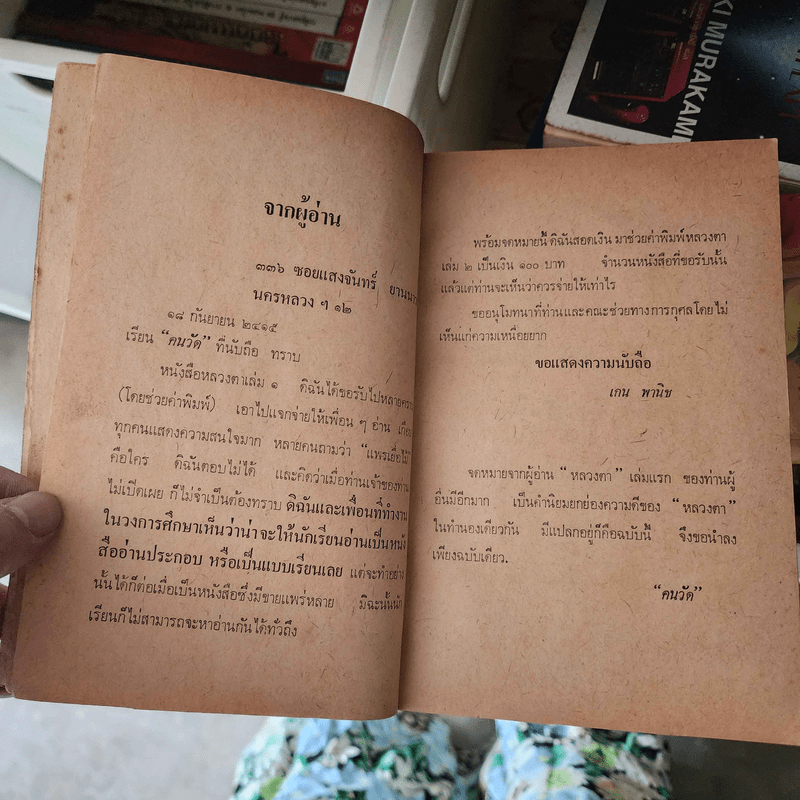 จากผู้อ่าน
๓๓๖ ซอยแสงจันทร์ ยานนาวา
นครหลวง ฯ ๑๒
๑๘ กันยายน ๒๔๑๕
เรียน “คนวัด” ที่นับถือ ทราบ
หนังสือหลวงตาเล่ม ๑ ดิฉันได้ขอรับไปหลายครา
(โดยช่วยค่าพิมพ์) เอาไปแจกจ่ายให้เพื่อน ๆ อ่าน เกือบ
ทุกคนแสดงความสนใจมาก หลายคนถามว่า “แพรเยื่อไม้”
คือใคร ดิฉันตอบไม่ได้ และคิดว่าเมื่อท่านเจ้าของนาม
ไม่เปิดเผย ก็ไม่จำเป็นต้องทราบ ดิฉันและเพื่อนที่ทำงาน
ในวงการศึกษาเห็นว่าน่าจะให้นักเรียนอ่านเป็นหนัง
สืออ่านประกอบ หรือเป็นแบบเรียนเลย แต่จะทำอย่าง
นั้นได้ก็ต่อเมื่อเป็นหนังสือซึ่งมีขายแพร่หลาย มิฉะนั้นนัก
เรียนก็ไม่สามารถจะหาอ่านกันได้ทั่วถึง
พร้อมจดหมายนี้ ดิฉันสอดเงิน มาช่วยค่าพิมพ์หลวงตา
เล่ม ๒ เป็นเงิน ๑๐๐ บาท จำนวนหนังสือที่ขอรับนั้น
แล้วแต่ท่านจะเห็นว่าควรจ่ายให้เท่าไร
ขออนุโมทนาที่ท่านและคณะช่วยทางการกุศลโดยไม่
เห็นแก่ความเหนื่อยยาก
ขอแสดงความนับถือ
เกน พานิช
จดหมายจากผู้อ่าน “หลวงตา” เล่มแรก ของท่านผู้
อื่นมีอีกมาก เป็นคำนิยมยกย่องความดีของ “หลวงตา”
ในทำนองเดียวกัน มีแปลกอยู่ก็คือฉบับนี้ จึงขอนำลง
เพียงฉบับเดียว.
“คนวัด”
KI MURAKAMI